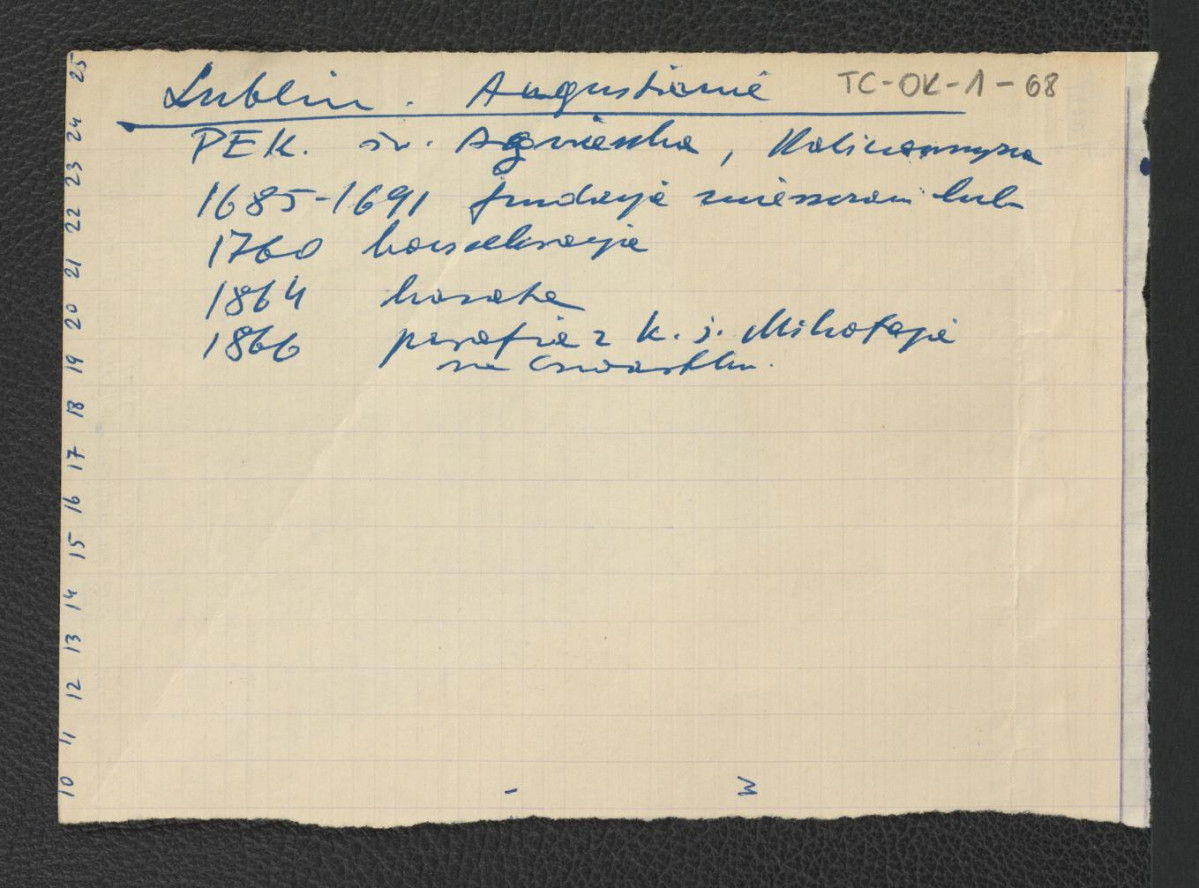 Lublin. Augustianie TC-OK-1-68
PEK. św. Agnieszka, Kalinowszczyzna
1685-1691 fundacja mieszczan lub.
1760 konsekracja
1864 kasata
1866 parafia z k. ś. Mikołaja
na Czwartku.
25
24
23
22
21
20
19
18
17
16
15
14
13
12
11
10